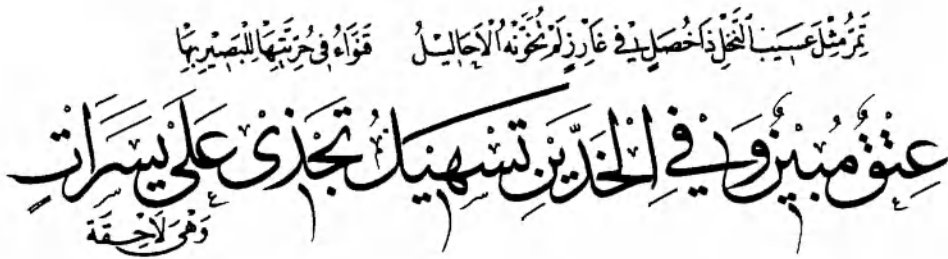 تَمُرُّ مِثْلَ عَسِيبِ النَّخْلِ ذَا خُصَلٍ فِي غَارِزٍ لَمْ تَخَوَّنْهُ الْأَحَالِيلُ قَنْوَاءُ فِي حُرَّتَيْهَا لِلْبَصِيرِ بِهَا
عِتْقٌ مُبِينٌ وَفِي الْخَدَّيْنِ تَسْهِيلُ تَخْذِي عَلَى يَسَرَاتٍ
وَهْيَ لَاحِقَةٌ